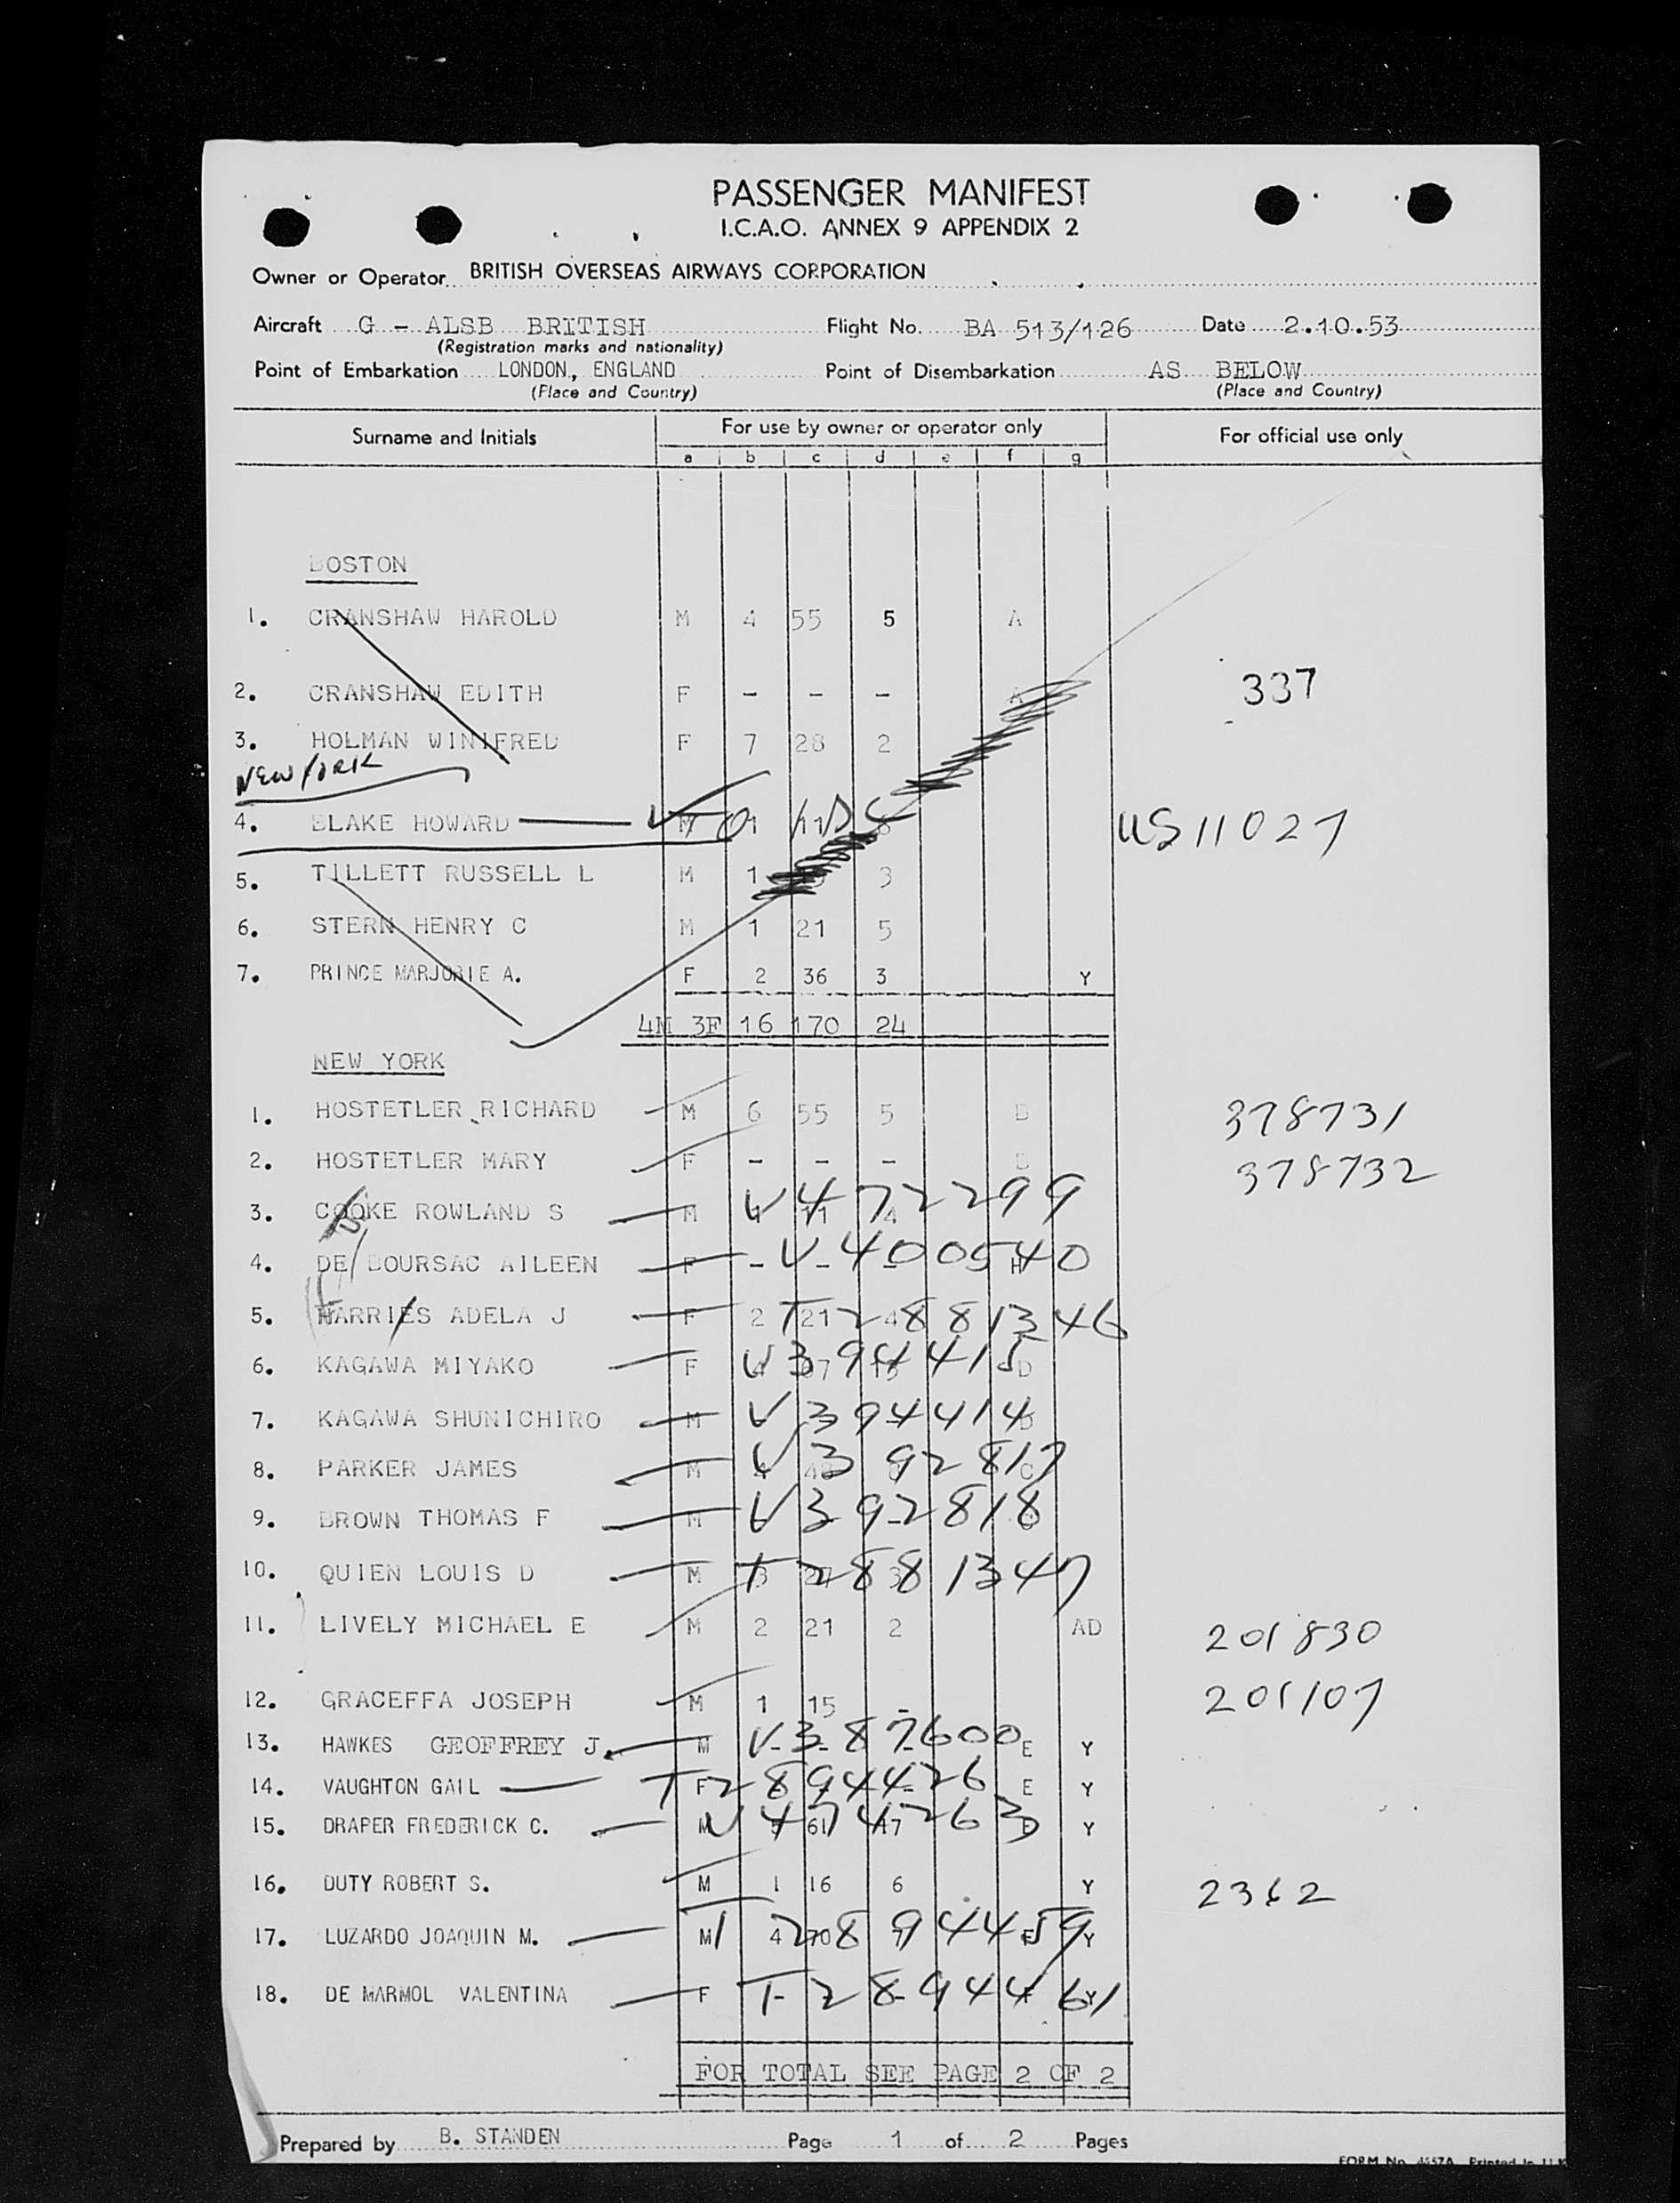 PASSENGER MANIFEST
I.C.A.O. ANNEX 9 APPENDIX 2
Owner or Operator BRITISH OVERSEAS AIRWAYS CORPORATION
Aircraft G - ALSB BRITISH Flight No. BA 513/126 Date 2.10.53
(Registration marks and nationality)
Point of Embarkation LONDON, ENGLAND Point of Disembarkation AS BELOW
(Place and Country) (Place and Country)
Surname and Initials For use by owner or operator only For official use only
a b c d e f g
BOSTON
1. CRANSHAW HAROLD M 4 55 5 A
2. CRANSHAW EDITH F - - - A 337
3. HOLMAN WINIFRED F 7 28 2
NEW YORK
4. BLAKE HOWARD M 1 US 11027
5. TILLETT RUSSELL L M 1 3
6. STERN HENRY C M 1 21 5
7. PRINCE MARJORIE A. F 2 36 3 Y
4M 3F 16 170 24
NEW YORK
1. HOSTETLER RICHARD M 6 55 5 B 378731
2. HOSTETLER MARY F - - - B 378732
3. COOKE ROWLAND S M V 472299
4. DE BOURSAC AILEEN F - - - H V 400540
5. HARRIES ADELA J F 2 21 4 T 2881346
6. KAGAWA MIYAKO F D V 394415
7. KAGAWA SHUNICHIRO M V 394414
8. PARKER JAMES M C V 392817
9. BROWN THOMAS F M V 392818
10. QUIEN LOUIS D M 3 3 T 2881347
11. LIVELY MICHAEL E M 2 21 2 AD 201830
12. GRACEFFA JOSEPH M 1 15 - 201107
13. HAWKES GEOFFREY J. M - - - E Y V 387600
14. VAUGHTON GAIL F E Y T 2894426
15. DRAPER FREDERICK C. M 61 17 Y V 474263
16. DUTY ROBERT S. M 1 16 6 Y 2362
17. LUZARDO JOAQUIN M. M 4 70 Y T 2894459
18. DE MARMOL VALENTINA F - - Y T 2894461
FOR TOTAL SEE PAGE 2 OF 2
Prepared by B. STANDEN Page 1 of 2 Pages
FORM No. 4557A Printed in U.K